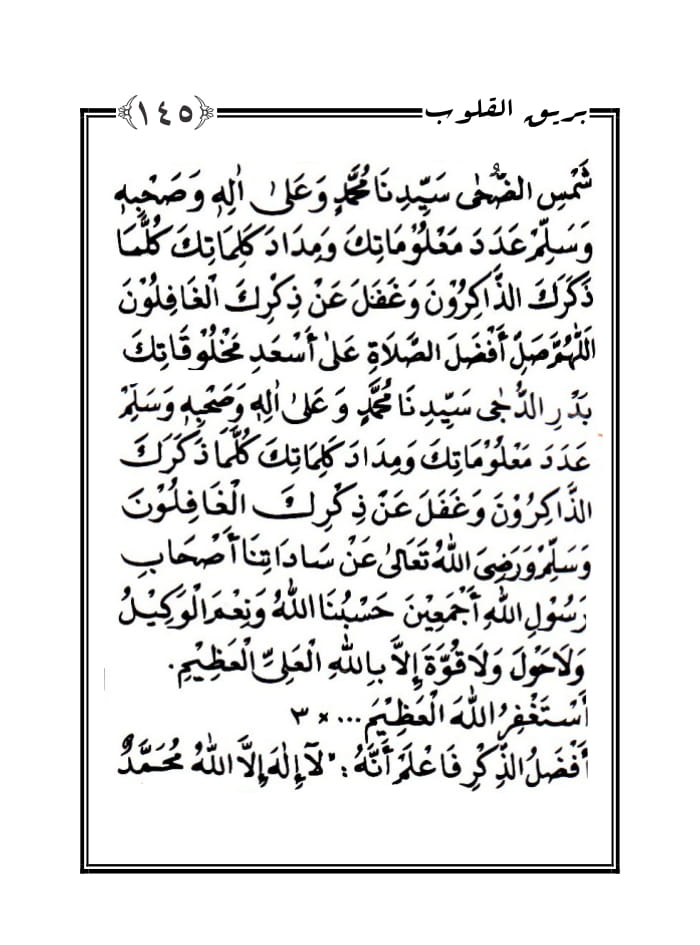 بريق القلوب
١٤٥
شَمْسِ الضُّحٰى سَيِّدِنَا مُحَمَّدٍ وَعَلىٰ اٰلِهٖ وَصَحْبِهٖ
وَسَلِّمْ عَدَدَ مَعْلُوْمَاتِكَ وَمِدَادَ كَلِمَاتِكَ كُلَّمَا
ذَكَرَكَ الذَّاكِرُوْنَ وَغَفَلَ عَنْ ذِكْرِكَ الْغَافِلُوْنَ
اَللّٰهُمَّ صَلِّ أَفْضَلَ الصَّلَاةِ عَلىٰ أَسْعَدِ مَخْلُوْقَاتِكَ
بَدْرِ الدُّجٰى سَيِّدِنَا مُحَمَّدٍ وَعَلىٰ اٰلِهٖ وَصَحْبِهٖ وَسَلِّمْ
عَدَدَ مَعْلُوْمَاتِكَ وَمِدَادَ كَلِمَاتِكَ كُلَّمَا ذَكَرَكَ
الذَّاكِرُوْنَ وَغَفَلَ عَنْ ذِكْرِكَ الْغَافِلُوْنَ
وَسَلِّمْ وَرَضِيَ اللّٰهُ تَعَالىٰ عَنْ سَادَاتِنَا أَصْحَابِ
رَسُوْلِ اللّٰهِ أَجْمَعِيْنَ حَسْبُنَا اللّٰهُ وَنِعْمَ الْوَكِيْلُ
وَلَا حَوْلَ وَلَا قُوَّةَ إِلَّا بِاللّٰهِ الْعَلِيِّ الْعَظِيْمِ.
أَسْتَغْفِرُ اللّٰهَ الْعَظِيْمَ... × ٣
أَفْضَلُ الذِّكْرِ فَاعْلَمْ أَنَّهُ : "لَآ إِلٰهَ إِلَّا اللّٰهُ مُحَمَّدٌ